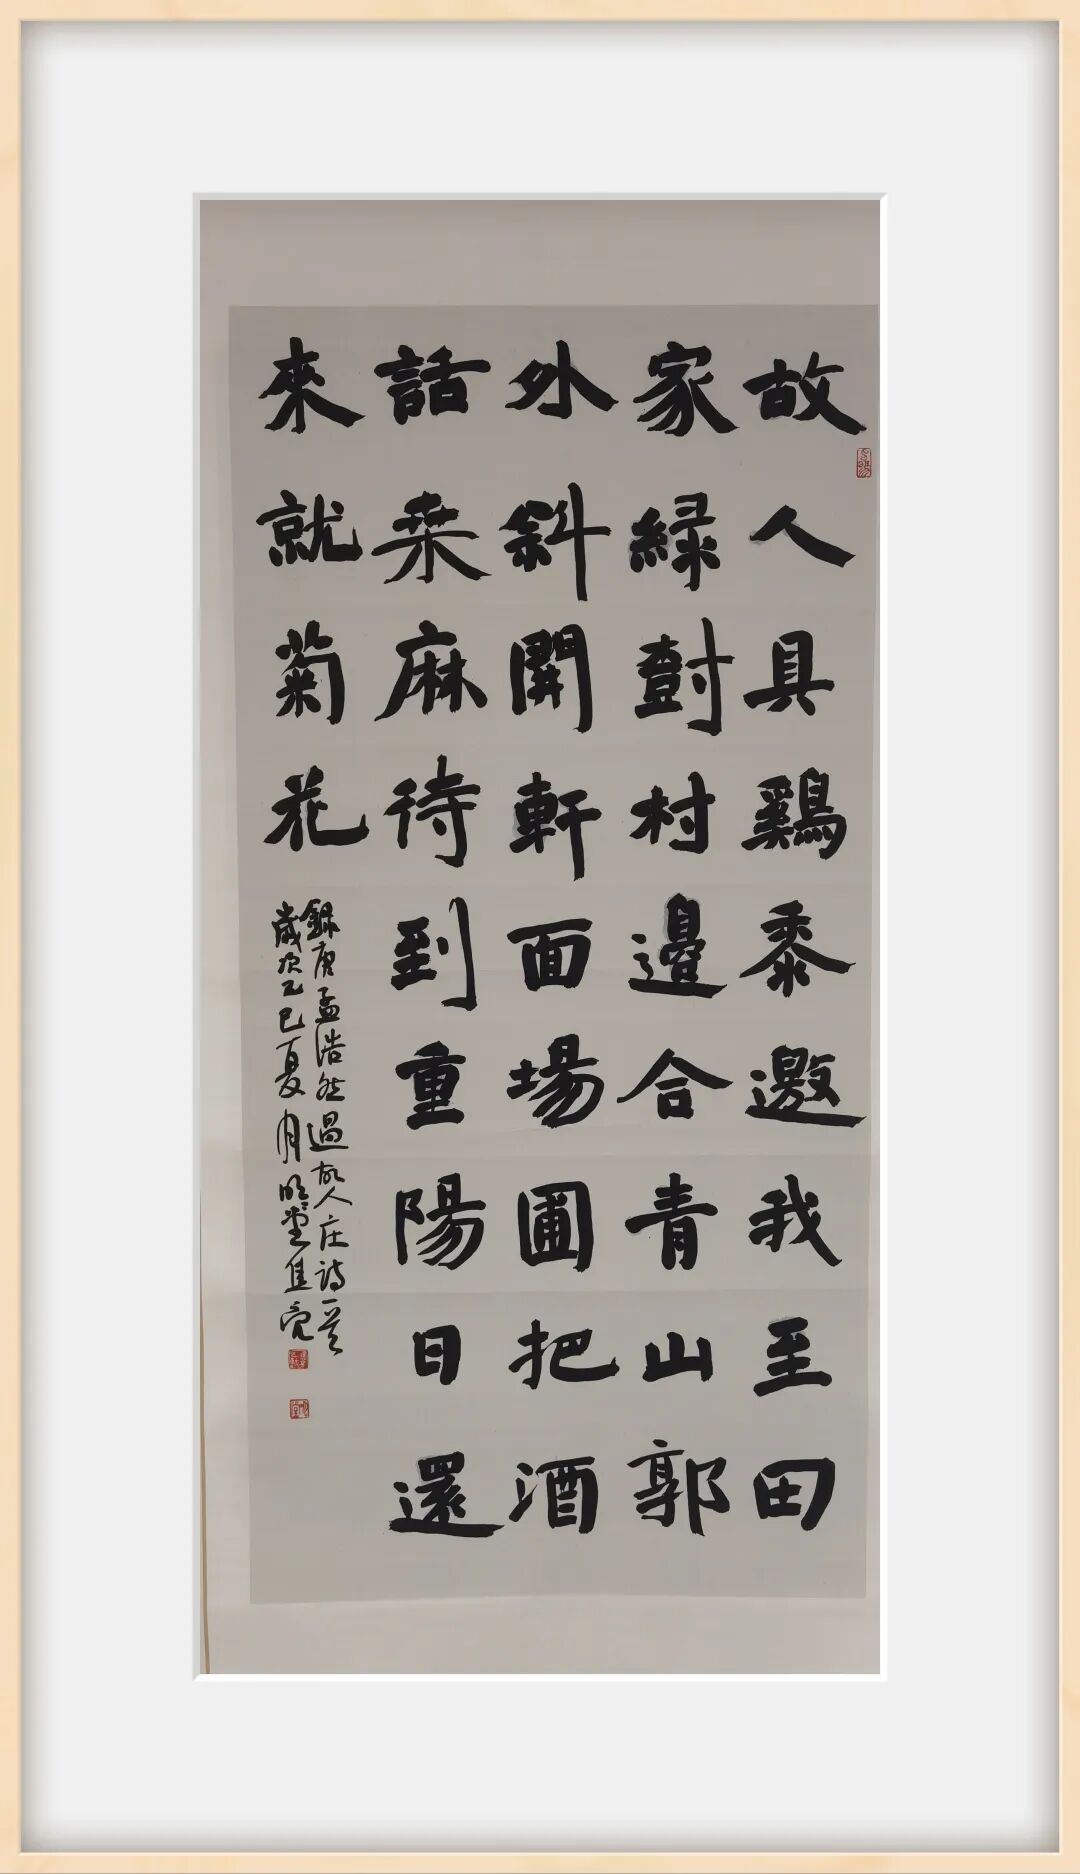 故人具鷄黍邀我至田
家緑對村邊合青山郭
外斜開軒面場圃把酒
話桒麻待到重陽日還
來就菊花
録唐孟浩然過故人庄詩一首
歲次乙巳夏月明堂隹亮